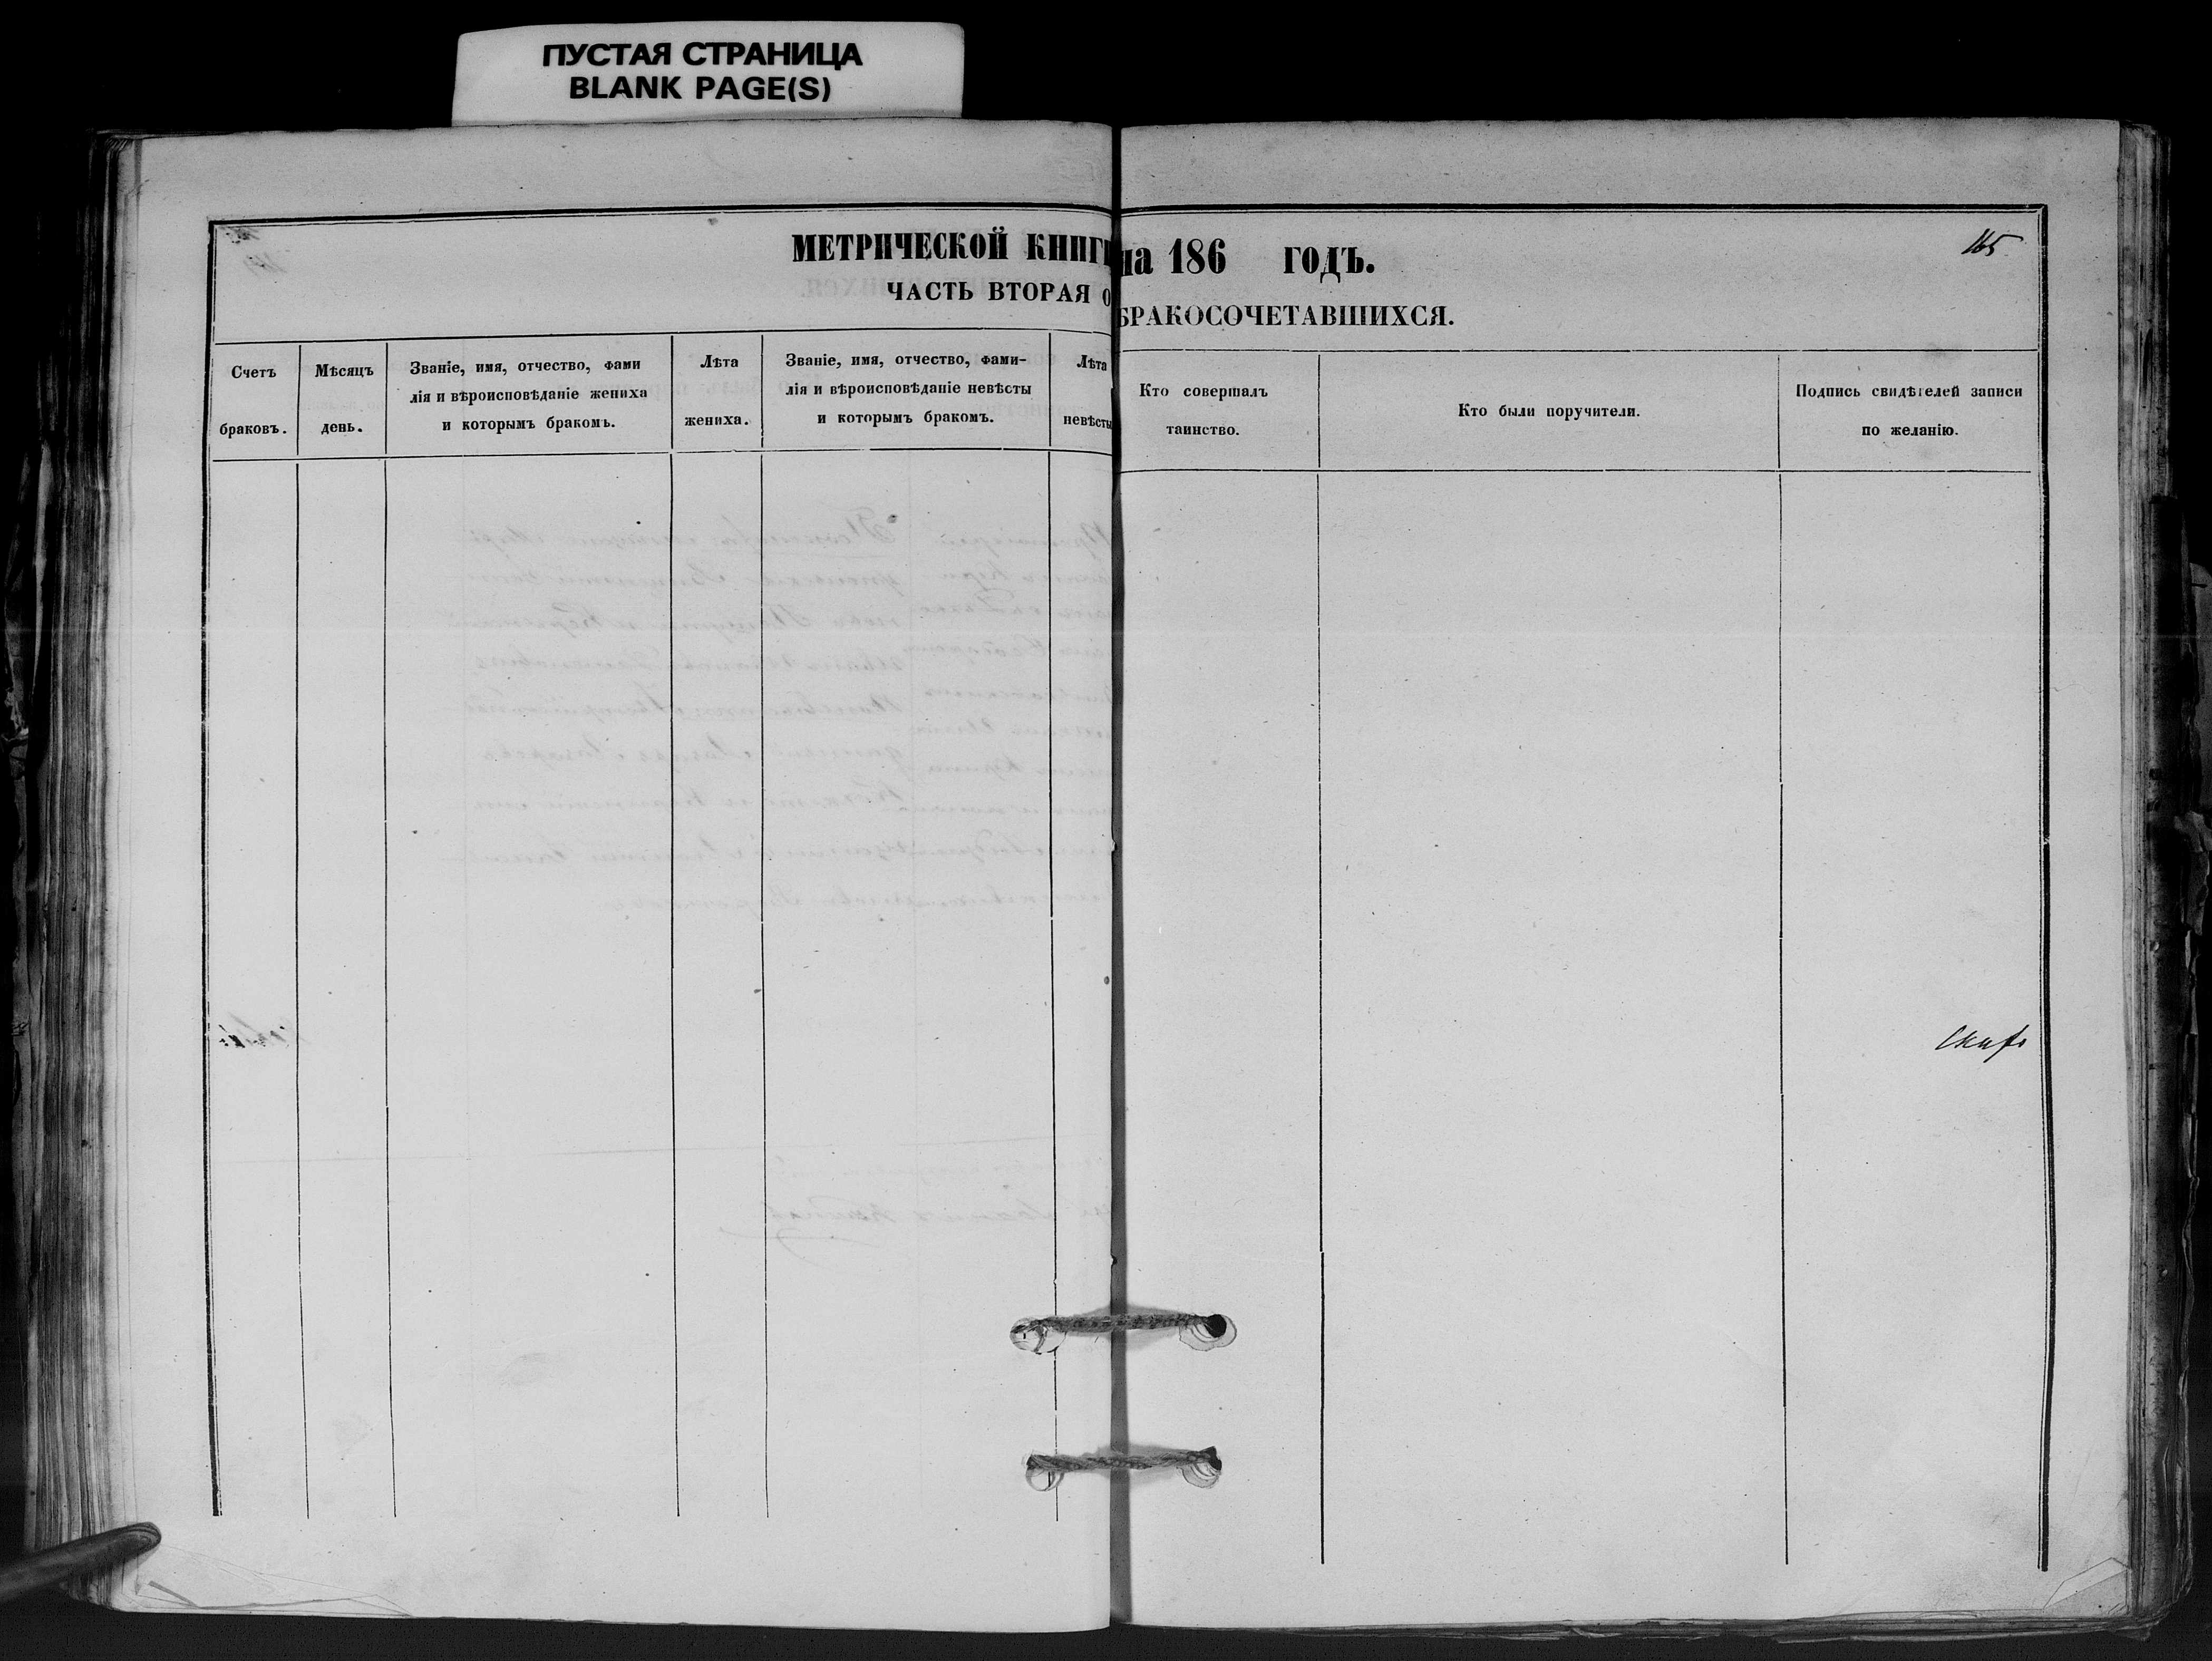 ПУСТАЯ СТРАНИЦА
BLANK PAGE(S)
МЕТРИЧЕСКОЙ КНИГИ на 186 ГОДЪ.
165
ЧАСТЬ ВТОРАЯ О БРАКОСОЧЕТАВШИХСЯ.
Счетъ
браковъ.
Мѣсяцъ
день.
Званіе, имя, отчество, фами
лія и вѣроисповѣданіе жениха
и которымъ бракомъ.
Лѣта
жениха.
Званіе, имя, отчество, фами-
лія и вѣроисповѣданіе невѣсты
и которымъ бракомъ.
Лѣта
невѣсты
Кто совершалъ
таинство.
Кто были поручители.
Подпись свидѣтелей записи
по желанію.